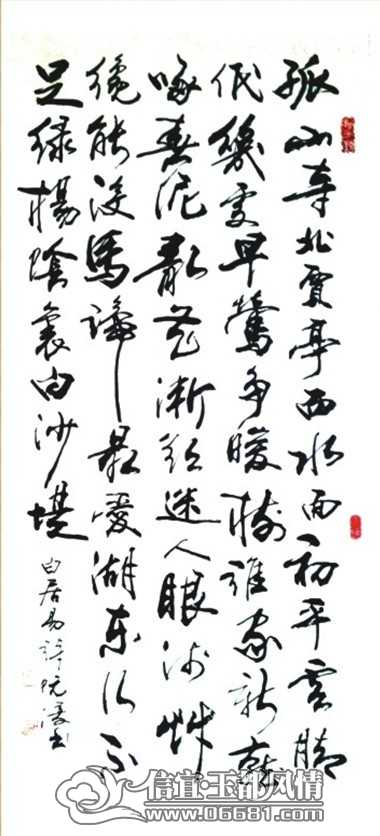 孤山寺北賈亭西水面初平雲脚
低幾處早鶯爭暖樹誰家新燕
啄春泥亂花漸欲迷人眼浅草
纔能没馬蹄最愛湖東行不
足緑楊陰裏白沙堤
白居易詩 书
信宜·玉都风情
www.06681.com